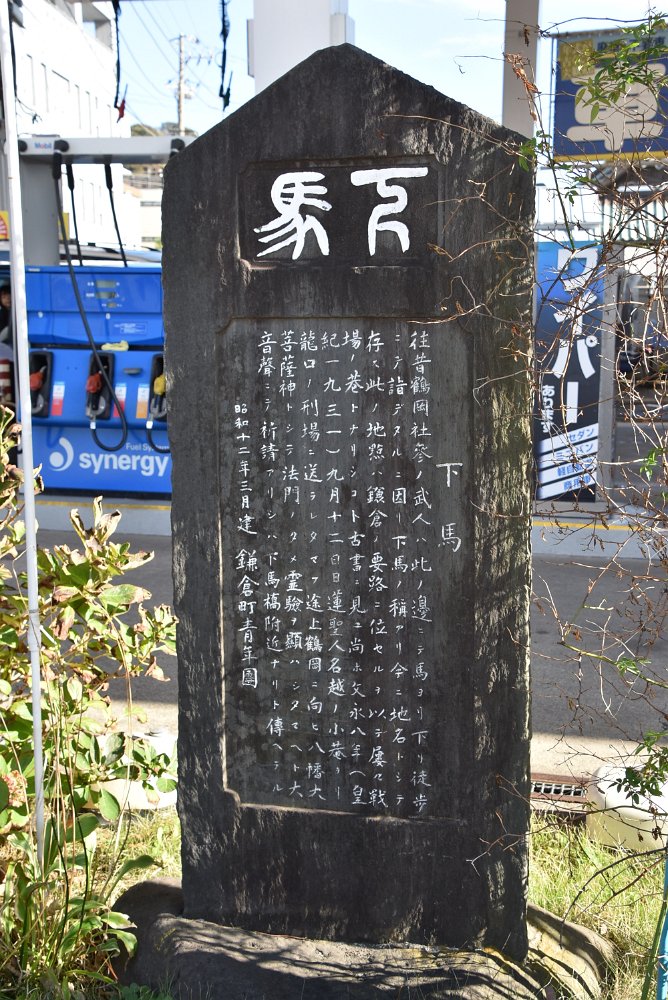 下馬
下馬
往昔鶴岡社参ノ武人ハ此ノ邊ニテ馬ヨリ下リ徒歩
ニテ詣デタルニ因リ下馬ノ稱アリ今ニ地名トシテ
存ス此ノ地點ハ鎌倉ノ要路ニ位セルヲ以テ屡々戰
場ノ巷トナリシコト古書ニ見ユ尚ホ文永八年(皇
紀一九三一)九月十二日日蓮聖人名越ノ小菴ヨリ
龍口ノ刑場ニ送ラレタマフ途上鶴岡ニ向ヒ八幡大
菩薩神トシテ法門ノタメ霊驗ヲ顯ハシタマヘト大
音聲ニテ祈請アリシハ下馬橋附近ナリト傳ヘテル
昭和十二年三月建 鎌倉町青年團
Mobil
Fuel System
synergy
ワイパー
あります
セダン
ミニバン
軽自動車